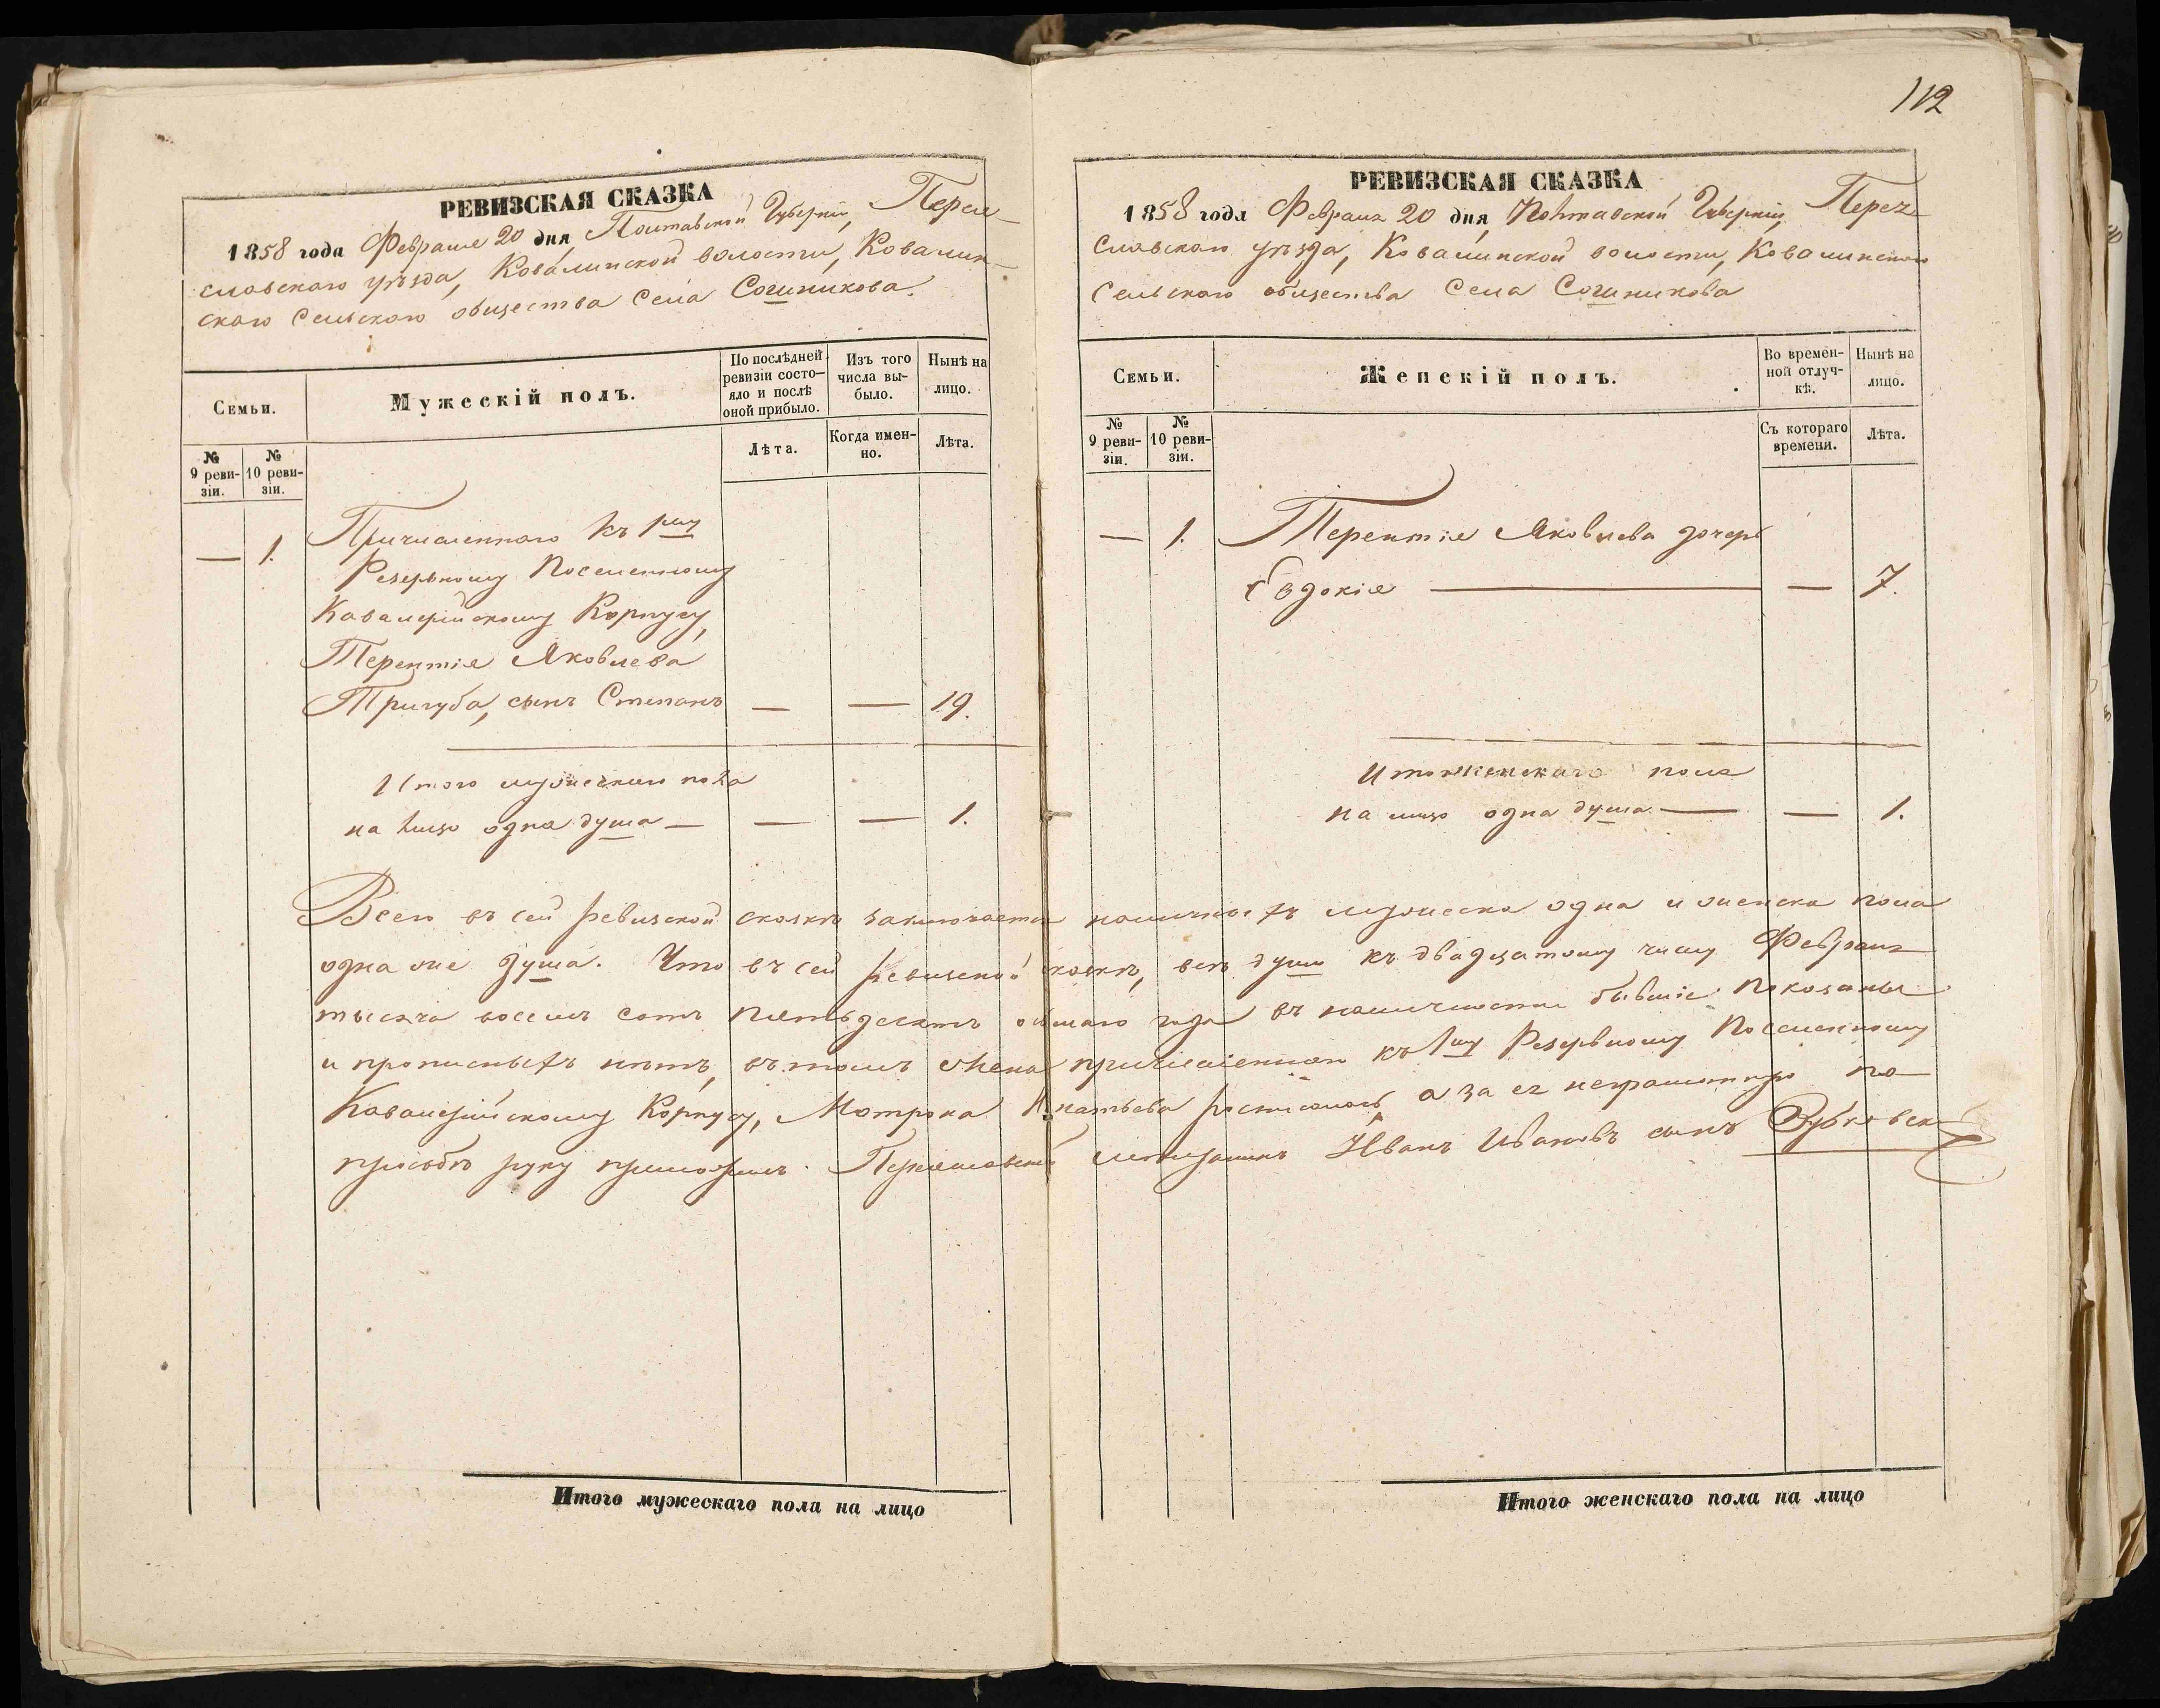 112
РЕВИЗСКАЯ СКАЗКА
1858 года Февраля 20 дня, Полтавской Губерніи, Перея-
славскаго уѣзда, Ковалинской волости, Ковалин-
скаго Сельскаго общества Села Сошникова.
Семьи.
Мужескій полъ.
По послѣдней ревизіи состо-
яло и послѣ оной прибыло.
Изъ того числа вы-
было.
Нынѣ на лицо.
№ 9 реви-
зіи.
№ 10 реви-
зіи.
Лѣта.
Когда имен-
но.
Лѣта.
— 1. Причисленнаго къ 1му
Резервному Поселенному
Кавалерійскому Корпусу,
Терентія Яковлева
Тригуба, сынъ Степанъ — — 19.
Итого мужескаго пола
на лицо одна душа — — — 1.
РЕВИЗСКАЯ СКАЗКА
1858 года Февраля 20 дня, Полтавской Губерніи, Перея-
славскаго уѣзда, Ковалинской волости, Ковалинскаго
Сельскаго общества Села Сошникова
Семьи.
Женскій полъ.
Во времен-
ной отлуч-
кѣ.
Нынѣ на лицо.
№ 9 реви-
зіи.
№ 10 реви-
зіи.
Съ котораго времени.
Лѣта.
— 1. Терентія Яковлева дочерь
Евдокія — — 7.
Итого женскаго пола
на лицо одна душа — — 1.
Всего въ сей ревизской сказкѣ заключается наличныхъ мужеска одна и женска пола
одна же душа. Что въ сей ревизской сказкѣ, всѣ души къ двадцатому числу Февраля
тысяча восемъ сотъ пятьдесятъ осьмаго года въ наличности бывшіе показаны
и прописныхъ нѣтъ, въ томъ жена причисленнаго къ 1му Резервному Поселенному
Кавалерійскому Корпусу, Мотрона Игнатьева росписалась, а за ея неграмотную по
прозьбѣ руку приложилъ. Переяславскій мещанинъ Иванъ Ивановъ сынъ
Итого мужескаго пола на лицо
Итого женскаго пола на лицо